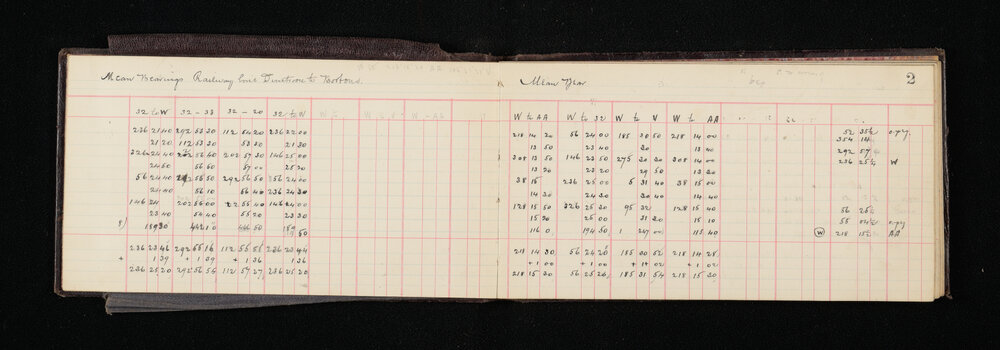 Mean Bearings Railway line
32 to W 32 - 33 32 - 20 32 to W
236 21 40 292 53 30 112 54 20 236 22 00
21 20 112 53 30 53 50 21 30
326 24 40 202 56 40 202 57 30 146 25 00
24 50 56 50 57 00 25 20
56 24 40 292 56 50 292 56 50 56 24 00
24 40 56 10 56 40 236 24 30
146 24 202 56 00 22 55 40 146 24 00
23 40 54 40 55 20 23 30
8) 189 30 442 10 446 50 189 50
236 23 46 292 55 16 112 55 51 236 23 44
+ 1 39 + 1 39 + 1 36 1 36
236 25 20 292 56 56 112 57 27 236 25 20
Mean Bear
2
W to AA W to 32 W to V W to AA
218 14 20 56 24 00 185 30 50 218 14 00
13 50 23 40 30 13 40
308 13 50 146 23 50 275 30 30 308 14 00
13 20 23 20 29 50 13 30
38 15 236 25 00 5 31 40 38 15 00
14 30 24 30 30 40 14 40
128 15 50 326 25 30 95 32 128 15 40
15 20 25 00 31 20 15 10
116 0 194 50 1 247 00 115 40
218 14 30 56 24 20 185 30 52 218 14 28
+ 1 00 + 1 00 + 1 02 + 1 02
218 15 30 56 25 20 185 31 54 218 15 30
52 35½
354 14
292 57
236 25½ W
56 25½
55
W 218 15½ AA